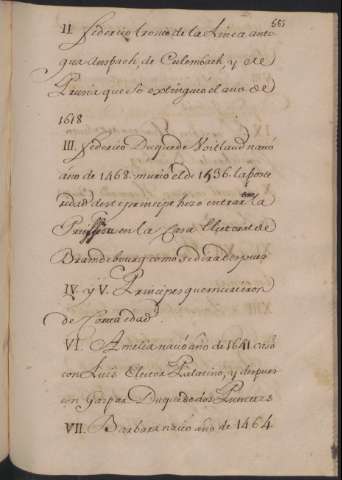 661
II. Federico tronco de la Linea anti
gua Anspach, de Culembach, y de
Prusia que se extinguio el año de
1618.
III. Federico Duque de Voitland nacio
año de 1468. murio el de 1536. la poste
ridad deste principe hizo entrar la
Prussia en la Casa Electoral de
Brandebourg como se dira despues
IV. y V. Principes que murieron
de corta edad.
VI. Amelia nacio año de 1641 caso
con Luis Elector Palatino, y despues
con Gaspar Duque de dos Puentes
VII. Barbara nacio año de 1464.